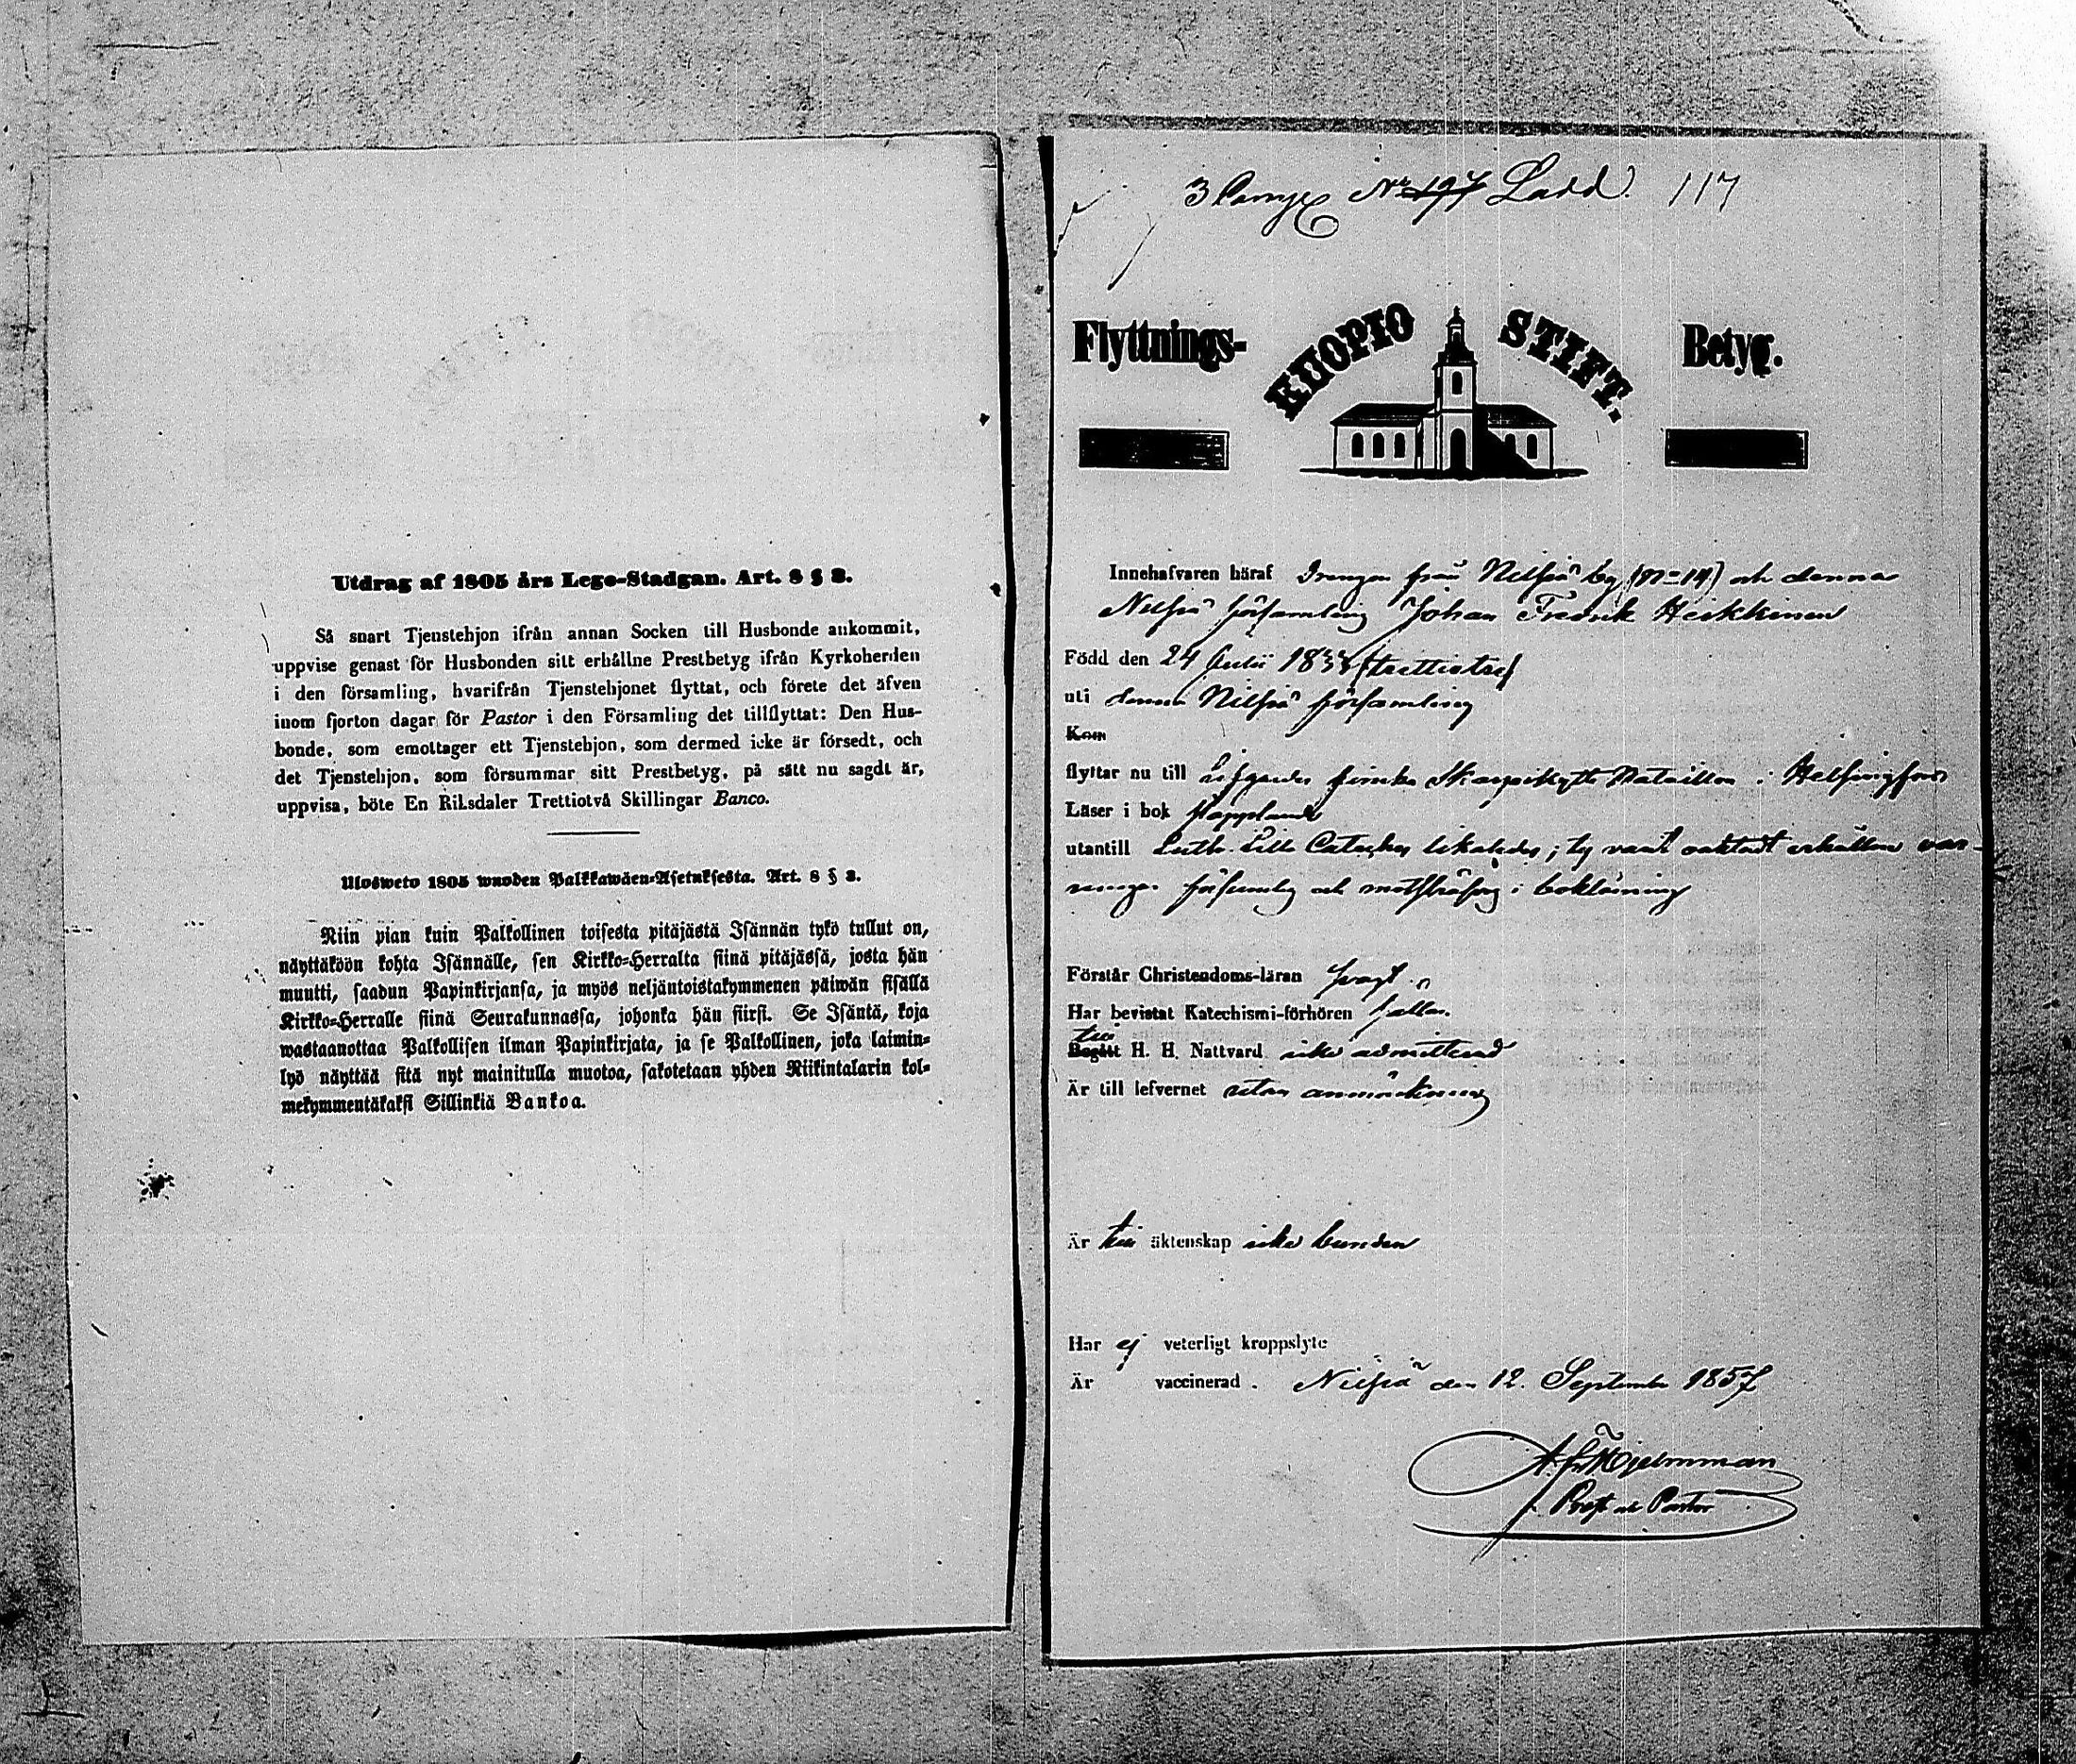 Utdrag af 1805 års Lego-Stadgan. Art. 8 § 3.
Så snart Tjenstehjon ifrån annan Socken till Husbonde ankommit,
uppvise genast för Husbonden sitt erhållne Prestbetyg ifrån Kyrkoherden
i den församling, hvarifrån Tjenstehjonet flyttat, och förete det äfven
inom fjorton dagar för Pastor i den Församling det tillflyttat: Den Hus-
bonde, som emottager ett Tjenstehjon, som dermed icke är försedt, och
det Tjenstehjon, som försummar sitt Prestbetyg, på sätt nu sagdt är,
uppvisa, böte En Riksdaler Trettiotvå Skillingar Banco.
Ulosweto 1805 wuoden Palkkawäen-Asetuksesta. Art. 8 § 3.
Niin pian kuin Palkollinen toisesta pitäjästä Isännän tykö tullut on,
näyttäköön kohta Isännälle, sen Kirkko-Herralta siinä pitäjässä, josta hän
muutti, saadun Papinkirjansa, ja myös neljäntoistakymmenen päiwän sisällä
Kirkko-Herralle siinä Seurakunnassa, johonka hän siirsi. Se Isäntä, koja
wastaanottaa Palkollisen ilman Papinkirjata, ja se Palkollinen, joka laimin-
lyö näyttää sitä nyt mainitulla muotoa, sakotetaan yhden Riikintalarin kol-
mekymmentäkaksi Sillinkiä Bankoa.
3 Comp. No 197 Ladd. 117
Flyttnings- KUOPIO STIFT. Betyg.
Innehafvaren häraf Drengen från Nilsiä by (No 14) och denna
Nilsiä församling Johan Fredrik Heikkinen
Född den 24 Julii 1833 (trettiotre)
uti denna Nilsiä församling
Kom
flyttar nu till finska Skarpskytte Bataillon i Helsingfors
Läser i bok stapplande
utantill Luth. Lilla Cateches likaledes; ty varit oaktadt erhållne var-
ningar försumlig och motsträfvig i bokläsning
Förstår Christendoms-läran svagt
Har bevistat Katechismi-förhören sällan.
till
Begått H. H. Nattvard icke admitterad
Är till lefvernet utan anmärkning
Är till äktenskap icke bunden
Har ej veterligt kroppslyte
Är vaccinerad. Nilsiä den 12. September 1857
A. Fr. Hjelmman
Prost och Pastor